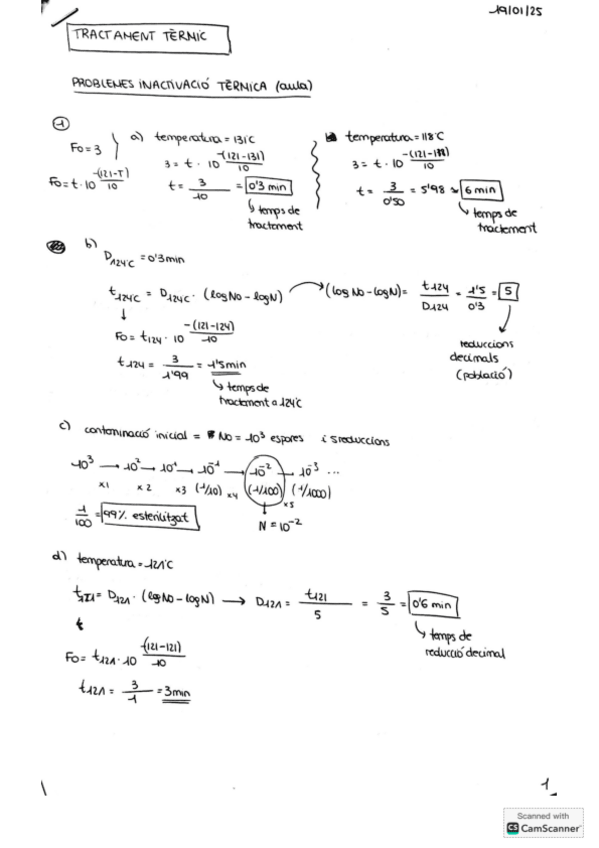 19/01/25
TRACTAMENT TÈRMIC
PROBLEMES INACTIVACIÓ TÈRMICA (aula)
1
F0 = 3
F0 = t · 10 -(121-T)/10
a) temperatura = 131°C
3 = t · 10 -(121-131)/10
t = 3/10 = 0'3 min
temps de
tractement
temperatura = 118°C
3 = t · 10 -(121-118)/10
t = 3/0'50 = 5'98 ≈ 6 min
temps de
tractement
b)
D124°C = 0'3 min
t124°C = D124°C · (log N0 - log N) → (log N0 - log N) = t124/D124 = 1'5/0'3 = 5
F0 = t124 · 10 -(121-124)/10
t124 = 3/1'99 = 1'5 min
temps de
tractement a 124°C
reduccions
decimals
(població)
c) contaminació inicial = N0 = 10³ espores i 5 reduccions
10³ → 10² → 10¹ → 10⁻¹ → 10⁻² → 10⁻³ ...
x1 x2 x3 (1/10) x4 (1/100) x5 (1/1000)
1/100 = 99% esterilitzat
N = 10⁻²
d) temperatura = 121°C
t121 = D121 · (log N0 - log N) → D121 = t121/5 = 3/5 = 0'6 min
t
temps de
reducció decimal
F0 = t121 · 10 -(121-121)/10
t121 = 3/1 = 3 min
1
Scanned with
CS CamScanner